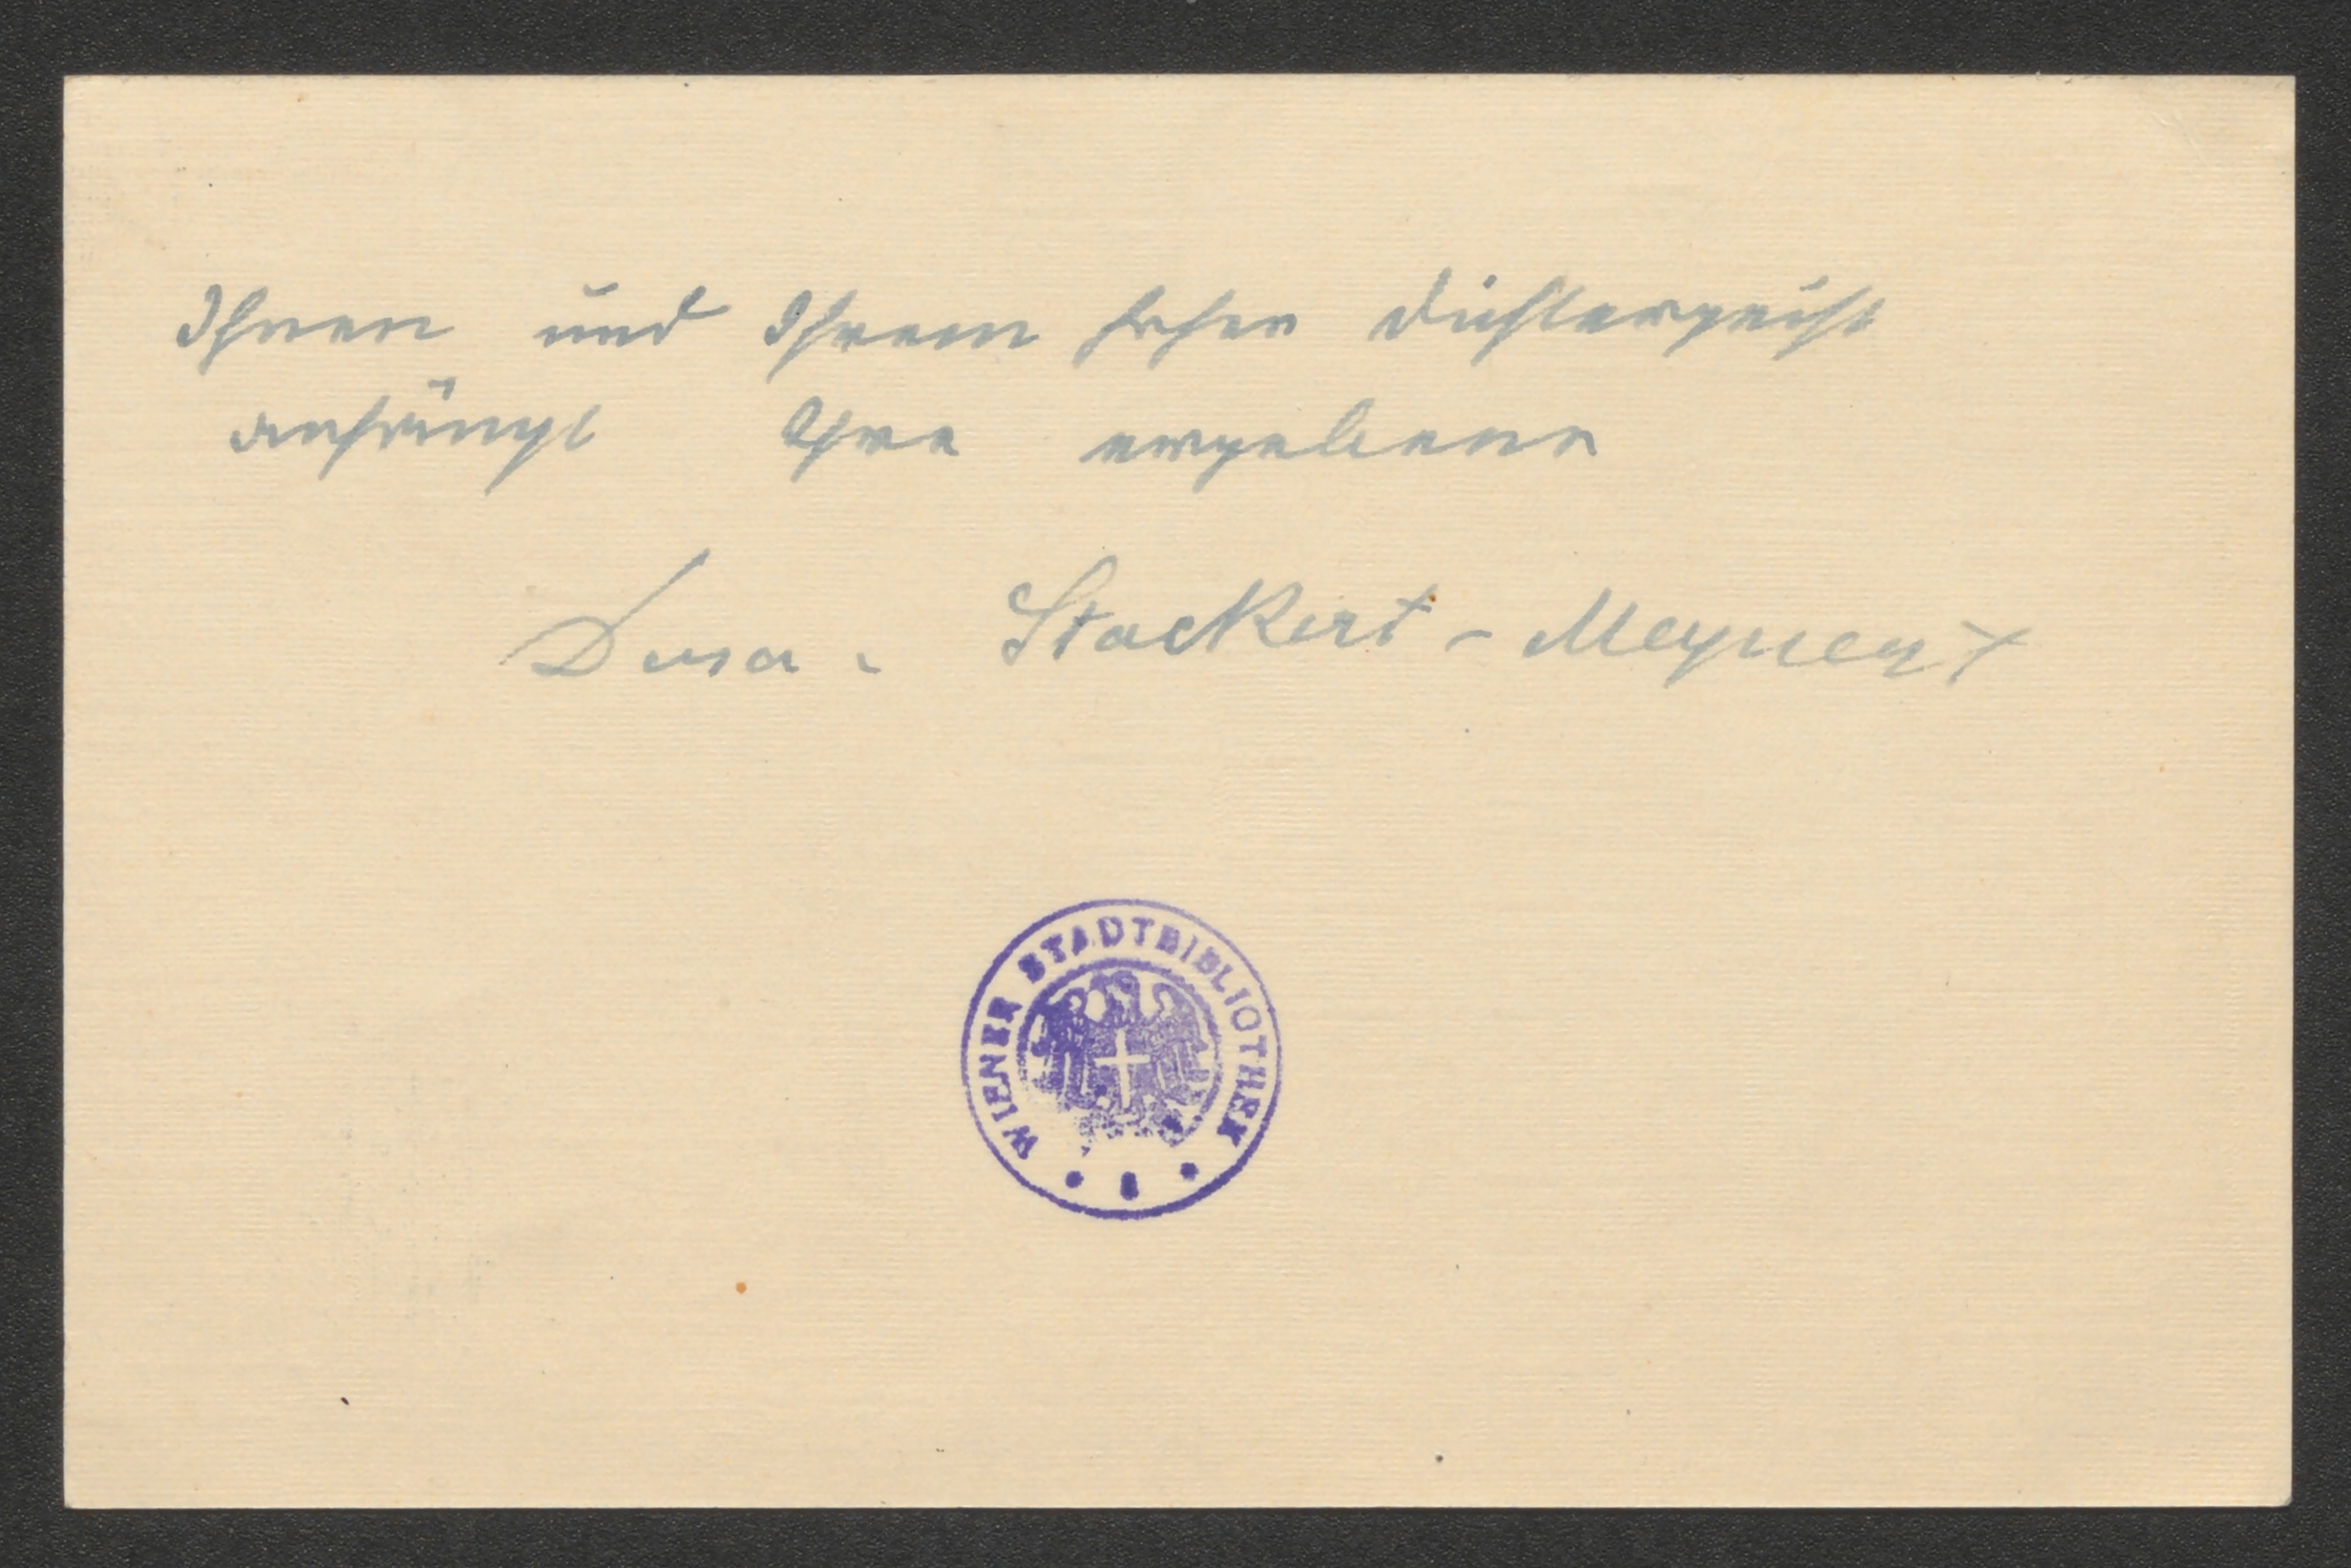 Ihnen und Ihrem hohen Dichtergeist
anhängt Ihre ergebene
Dora v. Stockert-Meynert
WIENER STADTBIBLIOTHEK